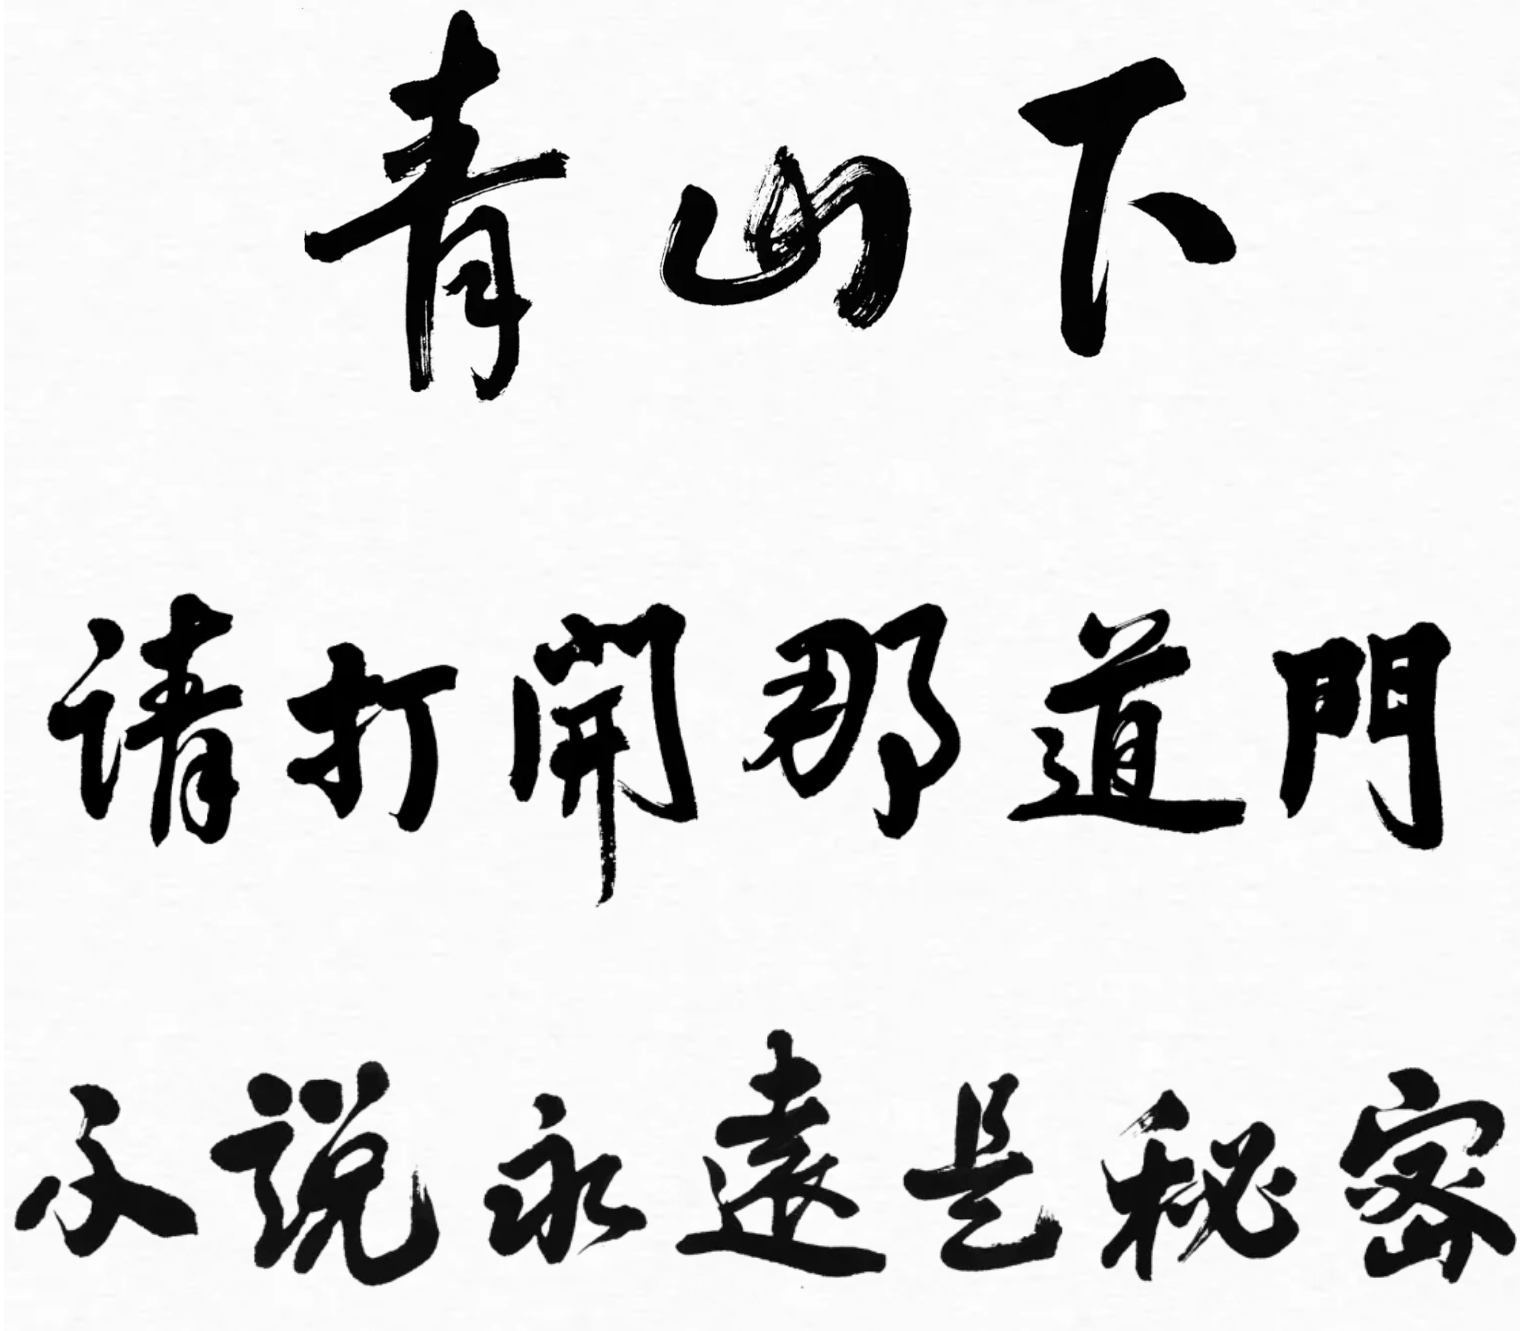 青山下
请打開那道門
不説永遠是秘密